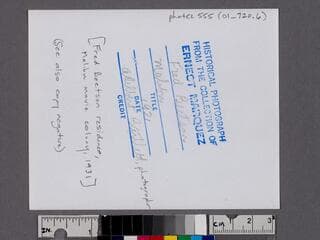 photCL 555 (01_720.6)
HISTORICAL PHOTOGRAPH
FROM THE COLLECTION OF
ERNEST MARQUEZ
Fred
Malibu
TITLE
1931
DATE
photographer
CREDIT
[Fred Beetson residence,
Malibu movie colony, 1931]
(See also copy negative)
INCH
1
2
CM
1
2